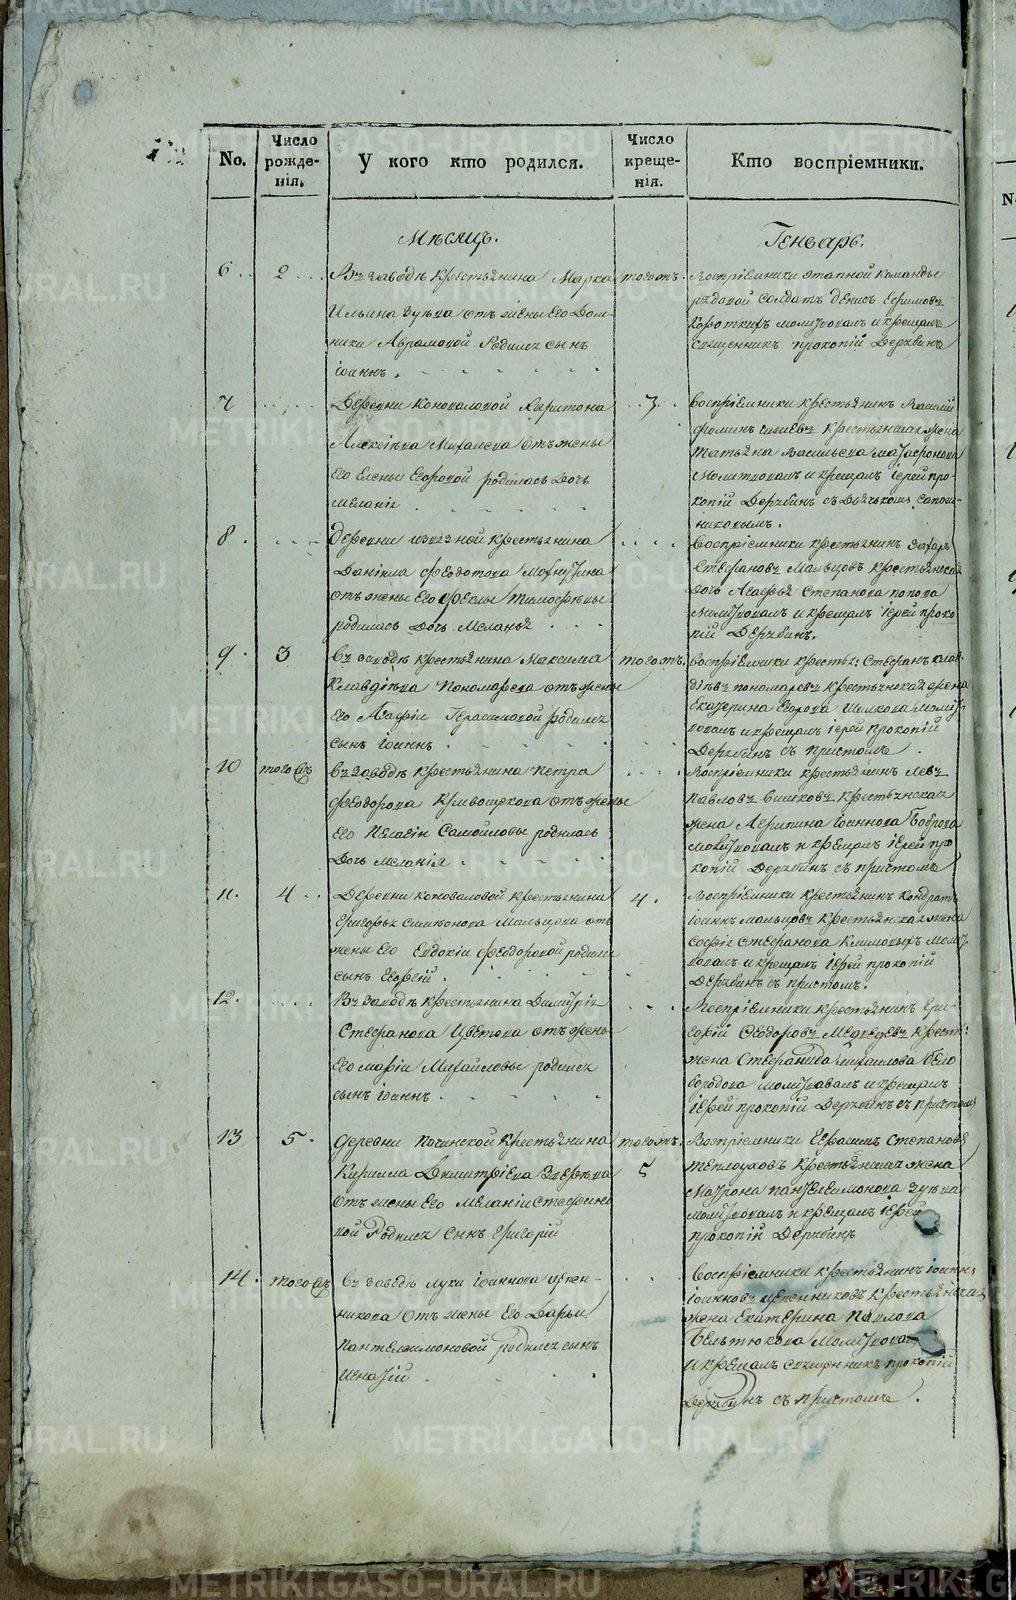 No.
Число рожде-
нія.
У кого кто родился.
Число креще-
нія.
Кто воспріемники.
Мѣсяцъ.
Генварь.
6
2
Въ заводѣ крестьянина Марка
Ильина Зуева отъ жены его Дом-
ники Аврамовой родился сынъ
іоаннъ.
тогожъ.
воспріемники этапной команды
рядовой солдатъ денисъ Ефимовъ
Короткихъ молитвовалъ и крещалъ
священникъ прокопій Дерябинъ
7
Деревни Коноваловой Харитона
Алексѣева Михалева отъ жены
его Елены Егоровой родилась дочь
меланія
3
воспріемники крестьянинъ Василий
крестьянская жена
татьяна Васильева
молитвовалъ и крещалъ іерей про-
копій Дерябинъ съ дьячкомъ сапож-
никовымъ.
8
деревни крестьянина
Даніила феодотова
отъ жены его феклы Тимофѣевы
родилась дочь меланья
воспріемники крестьянинъ Захаръ
Стефановъ Мальцовъ крестьянская
дочь Агафья Степанова попова
молитвовалъ и крещалъ іерей проко-
пій Дерябинъ.
9
3
въ заводѣ крестьянина Максима
Клавдіева Пономарева отъ жены
его Агафіи Герасимовой родился
сынъ іоаннъ
тогожъ.
воспріемники крестья: Стефанъ клав-
діевъ пономаревъ крестьянская жена
Екатерина Егорова молит-
вовалъ и крещалъ іерей прокопій
Дерябинъ съ причтомъ
10
того
въ заводѣ крестьянина петра
феодорова Кривощекова отъ жены
его Пелагіи Самойловы родилась
дочь меланія
воспріемники крестьянинъ левъ
павловъ крестьянская
жена Агрипина іоаннова Боброва
молитвовалъ и крещалъ іерей про-
копій Дерябинъ съ причтомъ
11.
4
Деревни коноваловой крестьянина
григорья Мальцова отъ
жены его Евдокіи феодоровой родился
сынъ георгій
4.
воспріемники крестьянинъ Кондратъ
іоаннъ мальцовъ крестьянская жена
софія стефанова Климовыхъ молит-
вовалъ и крещалъ іерей прокопій
Дерябинъ съ причтомъ.
12.
Въ заводѣ крестьянина Димитрія
Стефанова Цветова отъ жены
его марфы Михайловы родился
сынъ іоаннъ
воспріемники крестьянинъ гри-
горій Феодоровъ Медведевъ крестья:
жена Стефанида михаилова Бело
бородова молитвовалъ и крещалъ
іерей прокопій Дерябинъ съ причтомъ
13
5
деревни Починской крестьянина
Кирилла Димитріева Зверева
отъ жены его меланіи стефано-
вой родился сынъ григорій
тогожъ.
5
воспріемники герасимъ степановъ
теплоуховъ крестьянская жена
матрона пантелеимонова зуева
молитвовалъ и крещалъ іерей
прокопій Дерябинъ
14
того
въ заводѣ луки іоаннова
отъ жены его Дарьи
пантелимоновой родился сынъ
игнатій
воспріемники крестьянинъ іоаннъ
іоанновъ крестьянская
жена Екатерина Павлова
Бельтюкова молитвовалъ
и крещалъ священникъ прокопій
Дерябинъ съ причтомъ.
METRIKI.GASO-URAL.RU